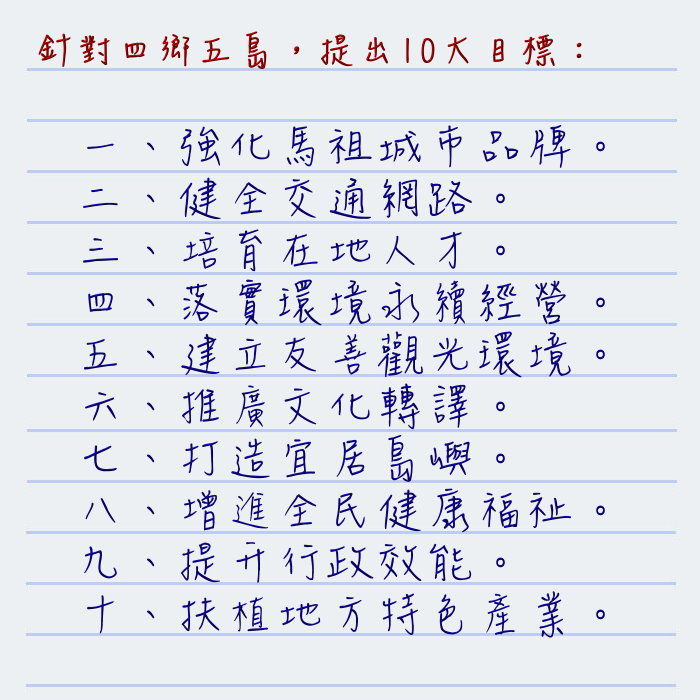 針對四鄉五島，提出10大目標：
一、強化馬祖城市品牌。
二、健全交通網路。
三、培育在地人才。
四、落實環境永續經營。
五、建立友善觀光環境。
六、推廣文化轉譯。
七、打造宜居島嶼。
八、增進全民健康福祉。
九、提升行政效能。
十、扶植地方特色產業。